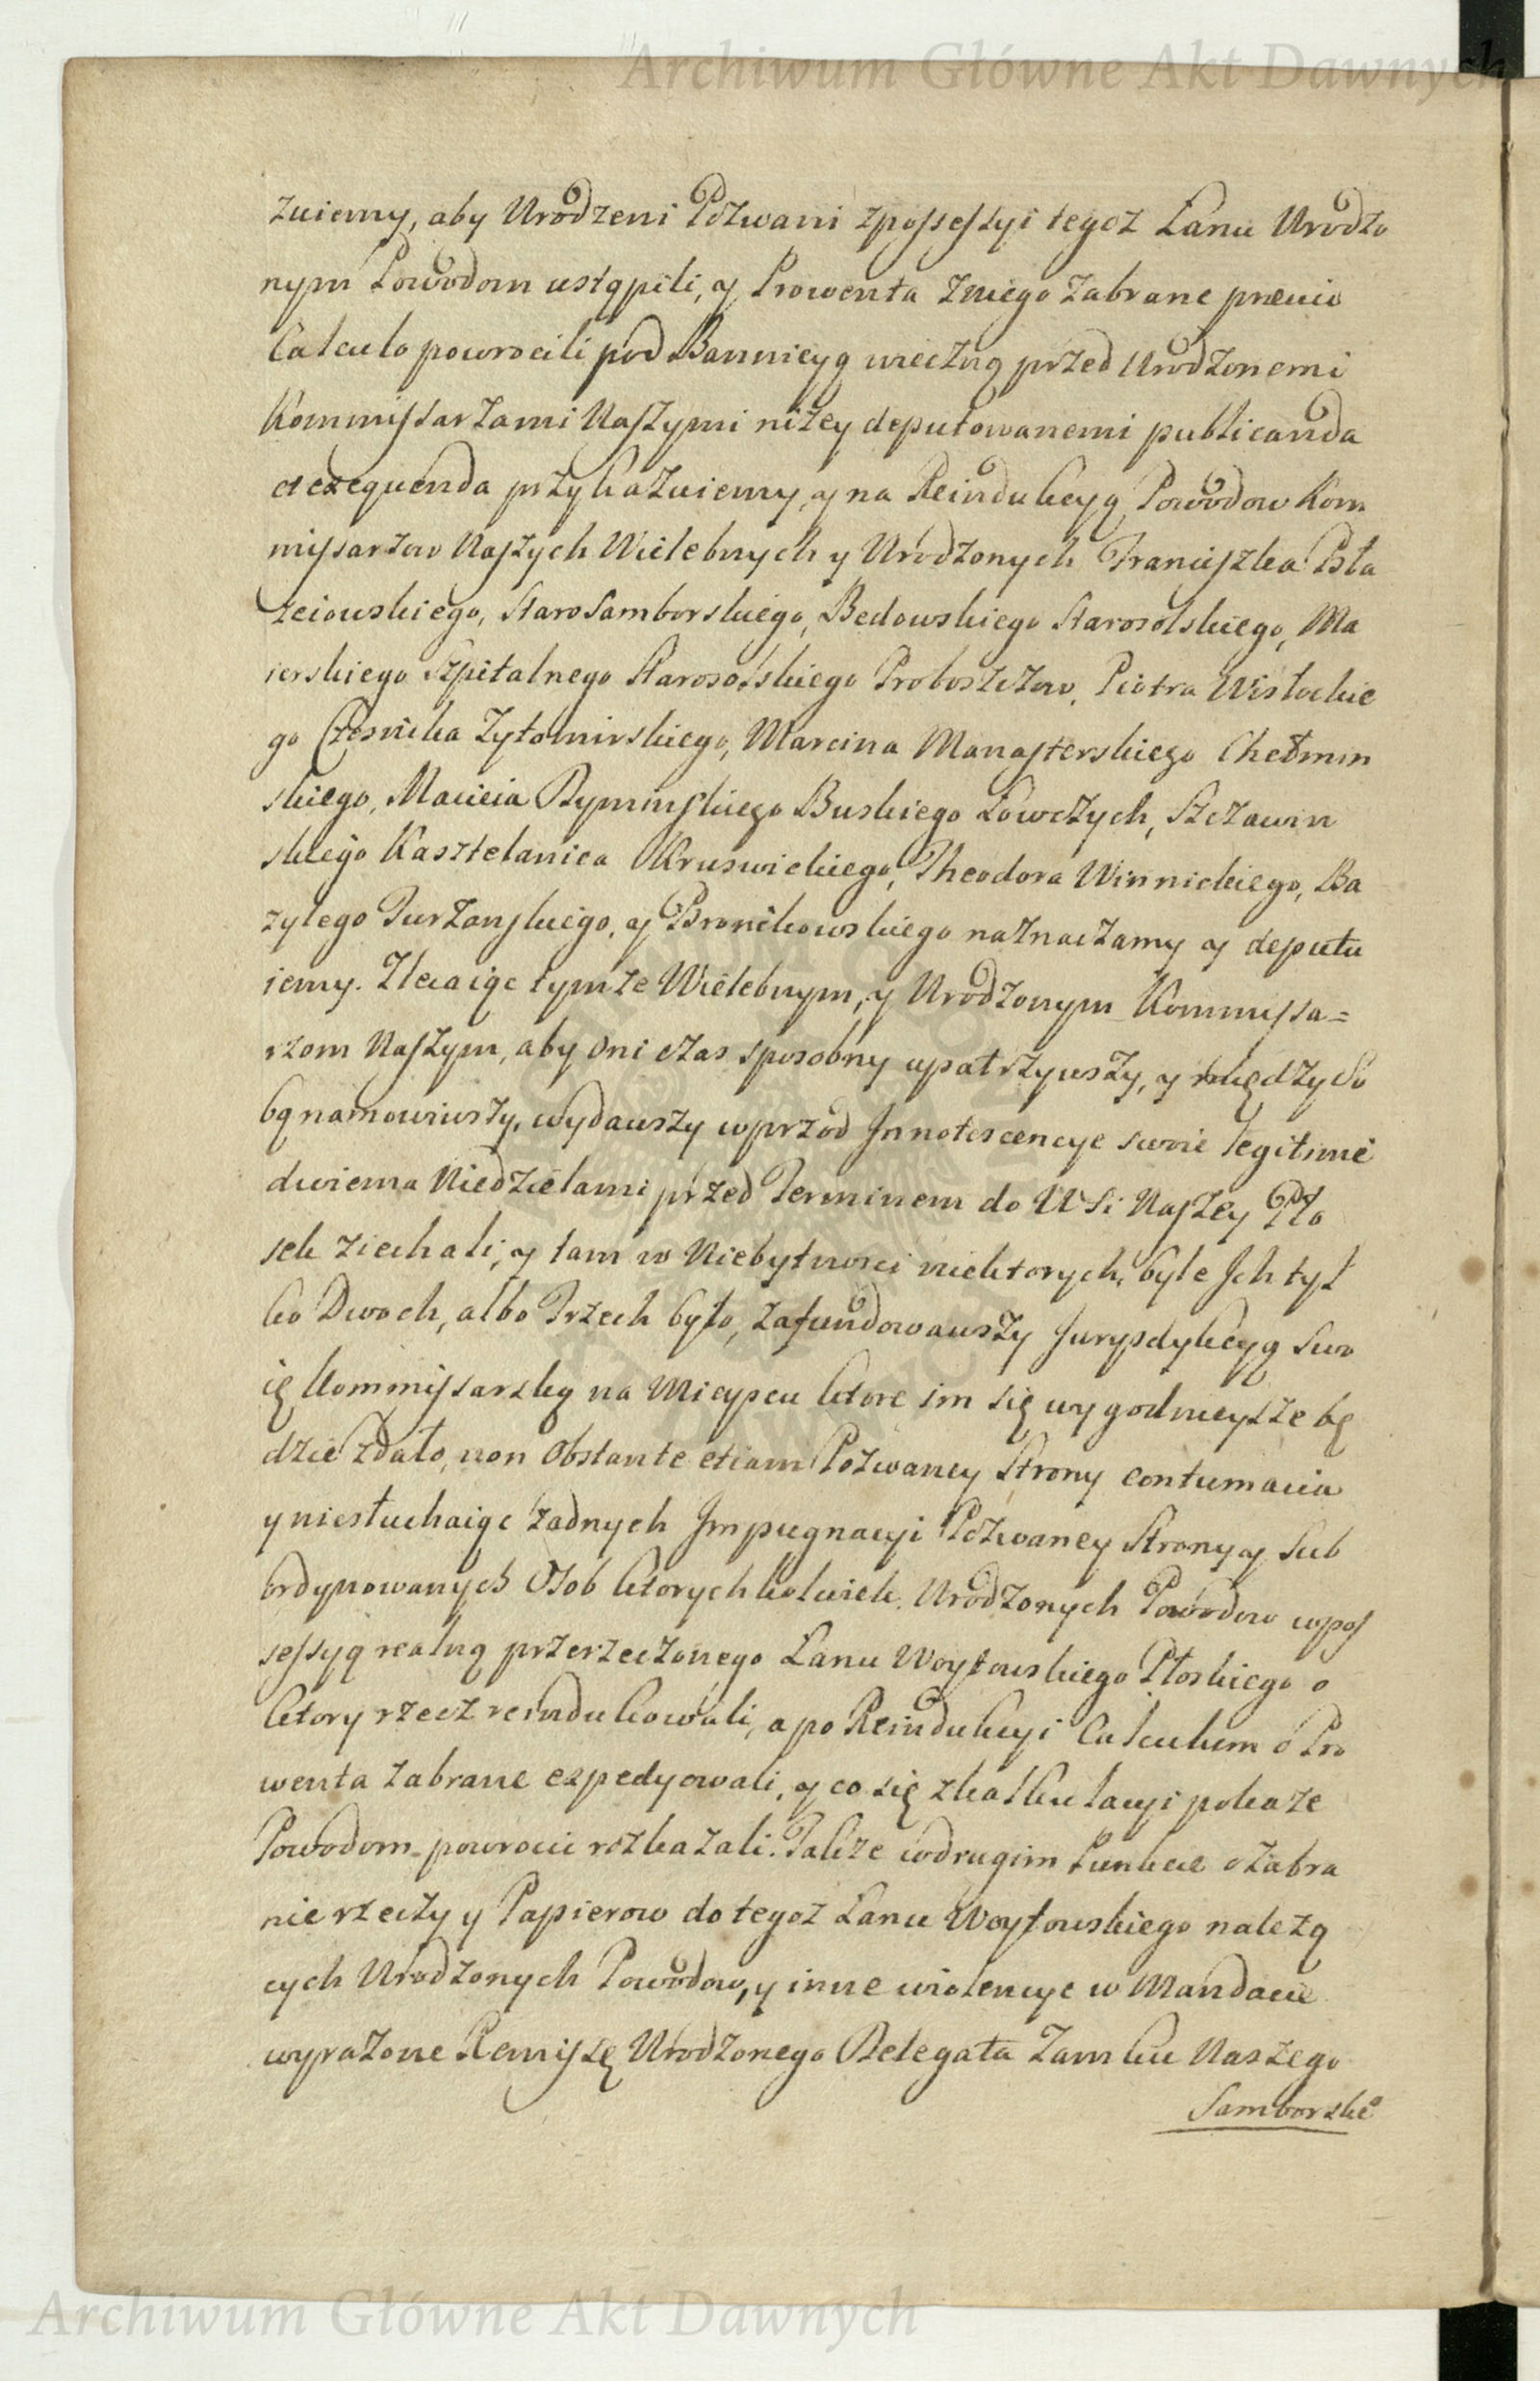 Archiwum Główne Akt Dawnych
zuiemy, aby Urodzeni Pozwani zpossessyi tegoz Łanu Urodzo
nym Powodom ustąpili, y Prowenta zniego zabrane prævio
Calculo powrocili pod Bannicyą wieczną przed Urodzonemi
Kommissarzami Naszymi niżey deputowanemi publicanda
et exequenda przykazuiemy, y na Reindukcyą Powodow Kom
missarzow Naszych Wielebnych y Urodzonych Franciszka Bła
zeiowskiego, Starosamborskiego, Bedowskiego Starosolskiego, Ma
ierskiego Szpitalnego Starosolskiego Proboszczow, Piotra Wisłockie
go Czesnika Zytomirskiego, Marcina Manasterskiego Chełmin
skiego, Macieia Ryminskiego Buskiego Łowczych, Szczawin
skiego Kasztelanica Kruswickiego, Theodora Winnickiego, Ba
zylego Turzanskiego, y Bronikowskiego naznaczamy y deputu
iemy. Zlecaiąc tymze Wielebnym, y Urodzonym Kommissa=
rzom Naszym, aby oni czas sposobny upatrzywszy, y między So
bą namowiwszy, wydawszy wprzod Innotescencye swoie legitime
dwiema Niedzielami przed Terminem do Wsi Naszey Pło
sek ziechali, y tam w Niebytnosci niektorych, byle Ich tyl
ko Dwoch, albo Trzech było, zafundowawszy Jurysdykcyą Swo
ię Kommissarską na Mieyscu ktore im się wygodnieysze bę
dzie zdało, non obstante etiam Pozwaney Strony contumacia
y niesłuchaiąc żadnych Impugnacyi Pozwaney Strony y Sub
ordynowanych Osob ktorychkolwiek. Urodzonych Powodow wpos
sessyą realną przerzeczonego Łanu Woytowskiego Płoskiego o
ktory rzecz reindukowali, a po Reindukcyi Calculum o Pro
wenta zabrane expedyowali, y co się zkalkulacyi pokaze
Powodom powrocic rozkazali. Takze wdrugim Punkcie o zabra
nie rzeczy y Papierow do tegoz Łanu Woytowskiego należą
cych Urodzonych Powodow, y inne wiolencye w Mandacie
wyrazone Remissę Urodzonego Delegata Zamku Naszego
Samborskie°
Archiwum Główne Akt Dawnych